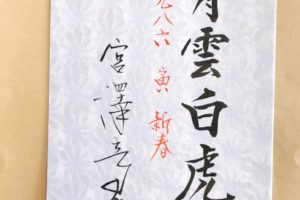 青雲白虎
一九八六 寅 新春
宮澤